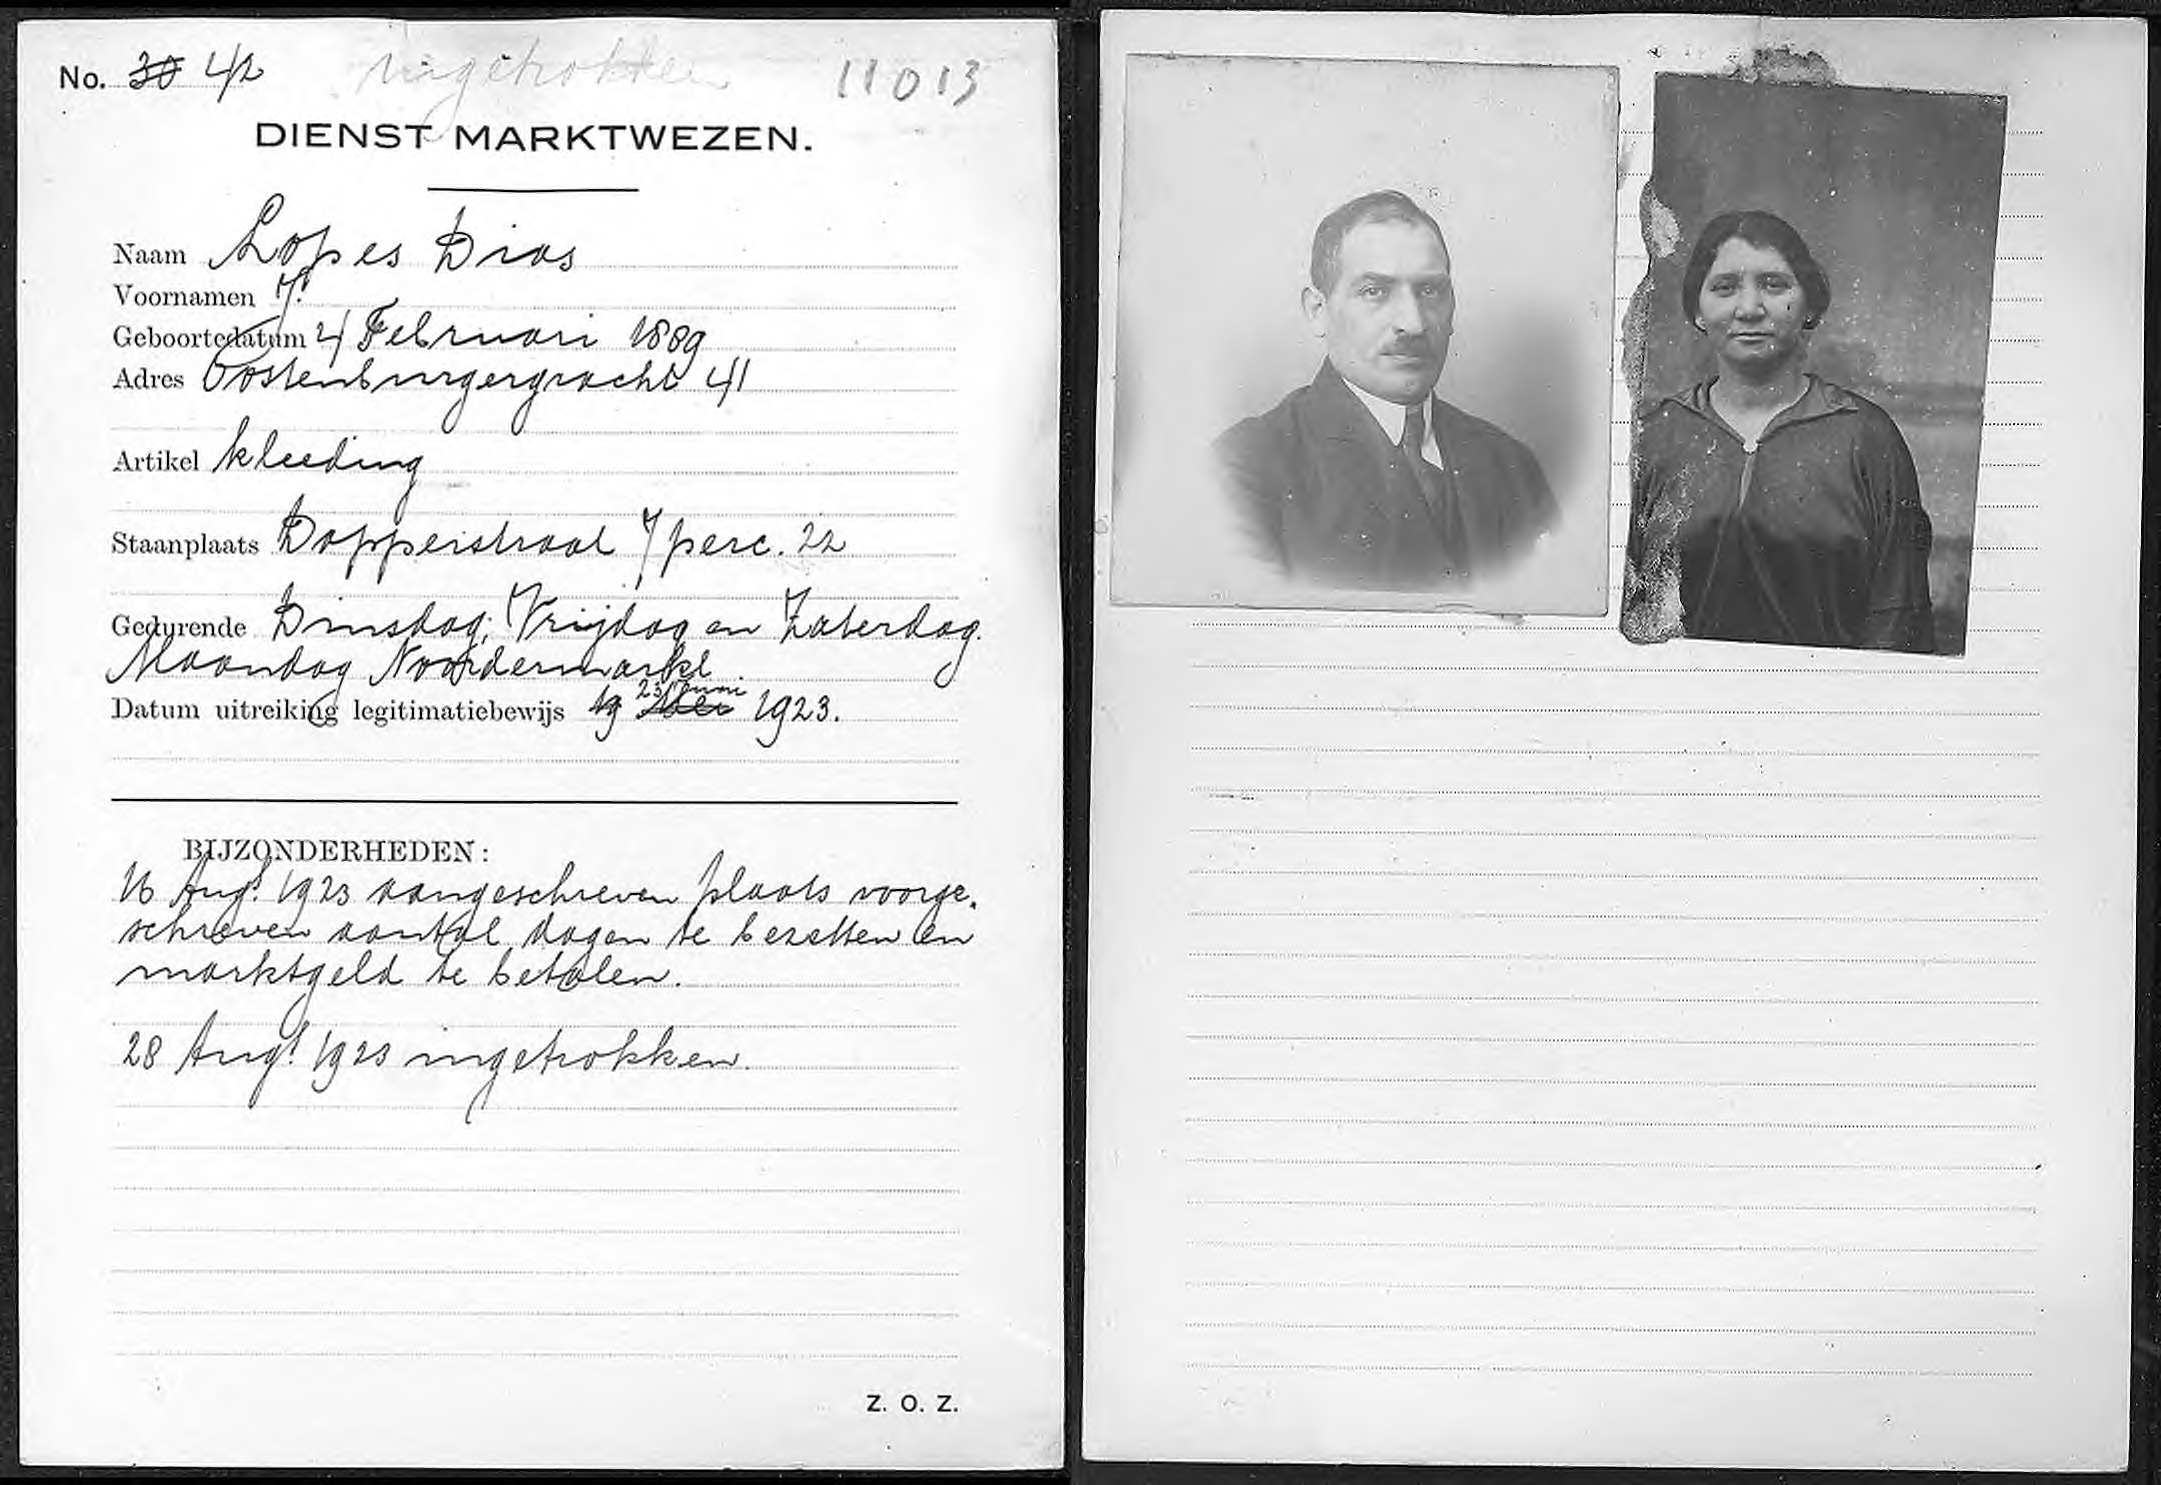 No. 30 42 ingetrokken 11013
DIENST MARKTWEZEN.
Naam Lopes Dias
Voornamen J.
Geboortedatum 4 Februari 1889
Adres Oostenburgergracht 41
Artikel kleeding
Staanplaats Dapperstraat 7 perc. 22
Gedurende Dinsdag, Vrijdag en Zaterdag.
Maandag Noordermarkt.
23 Juni
Datum uitreiking legitimatiebewijs 19 Mei 1923.
BIJZONDERHEDEN:
16 Augt. 1923 aangeschreven plaats voorge-
schreven aantal dagen te bezetten en
marktgeld te betalen.
28 Augt. 1923 ingetrokken.
Z. O. Z.